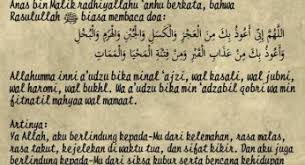 Anas bin Malik radhiyallahu 'anhu berkata, bahwa
Rasulullah ﷺ biasa membaca doa:
اللَّهُمَّ إِنِّى أَعُوذُ بِكَ مِنَ الْعَجْزِ وَالْكَسَلِ وَالْجُبْنِ وَالْهَرَمِ وَالْبُخْلِ
وَأَعُوذُ بِكَ مِنْ عَذَابِ الْقَبْرِ وَمِنْ فِتْنَةِ الْمَحْيَا وَالْمَمَاتِ
Allahumma inni a'udzu bika minal 'ajzi, wal kasali, wal jubni,
wal haromi, wal bukhl. Wa a'udzu bika min 'adzabil qobri wa min
fitnatil mahyaa wal mamaat.
Artinya:
Ya Allah, aku berlindung kepada-Mu dari kelemahan, rasa malas,
rasa takut, kejelekan di waktu tua, dan sifat kikir. Dan aku juga
berlindung kepada-Mu dari siksa kubur serta bencana kehidupan